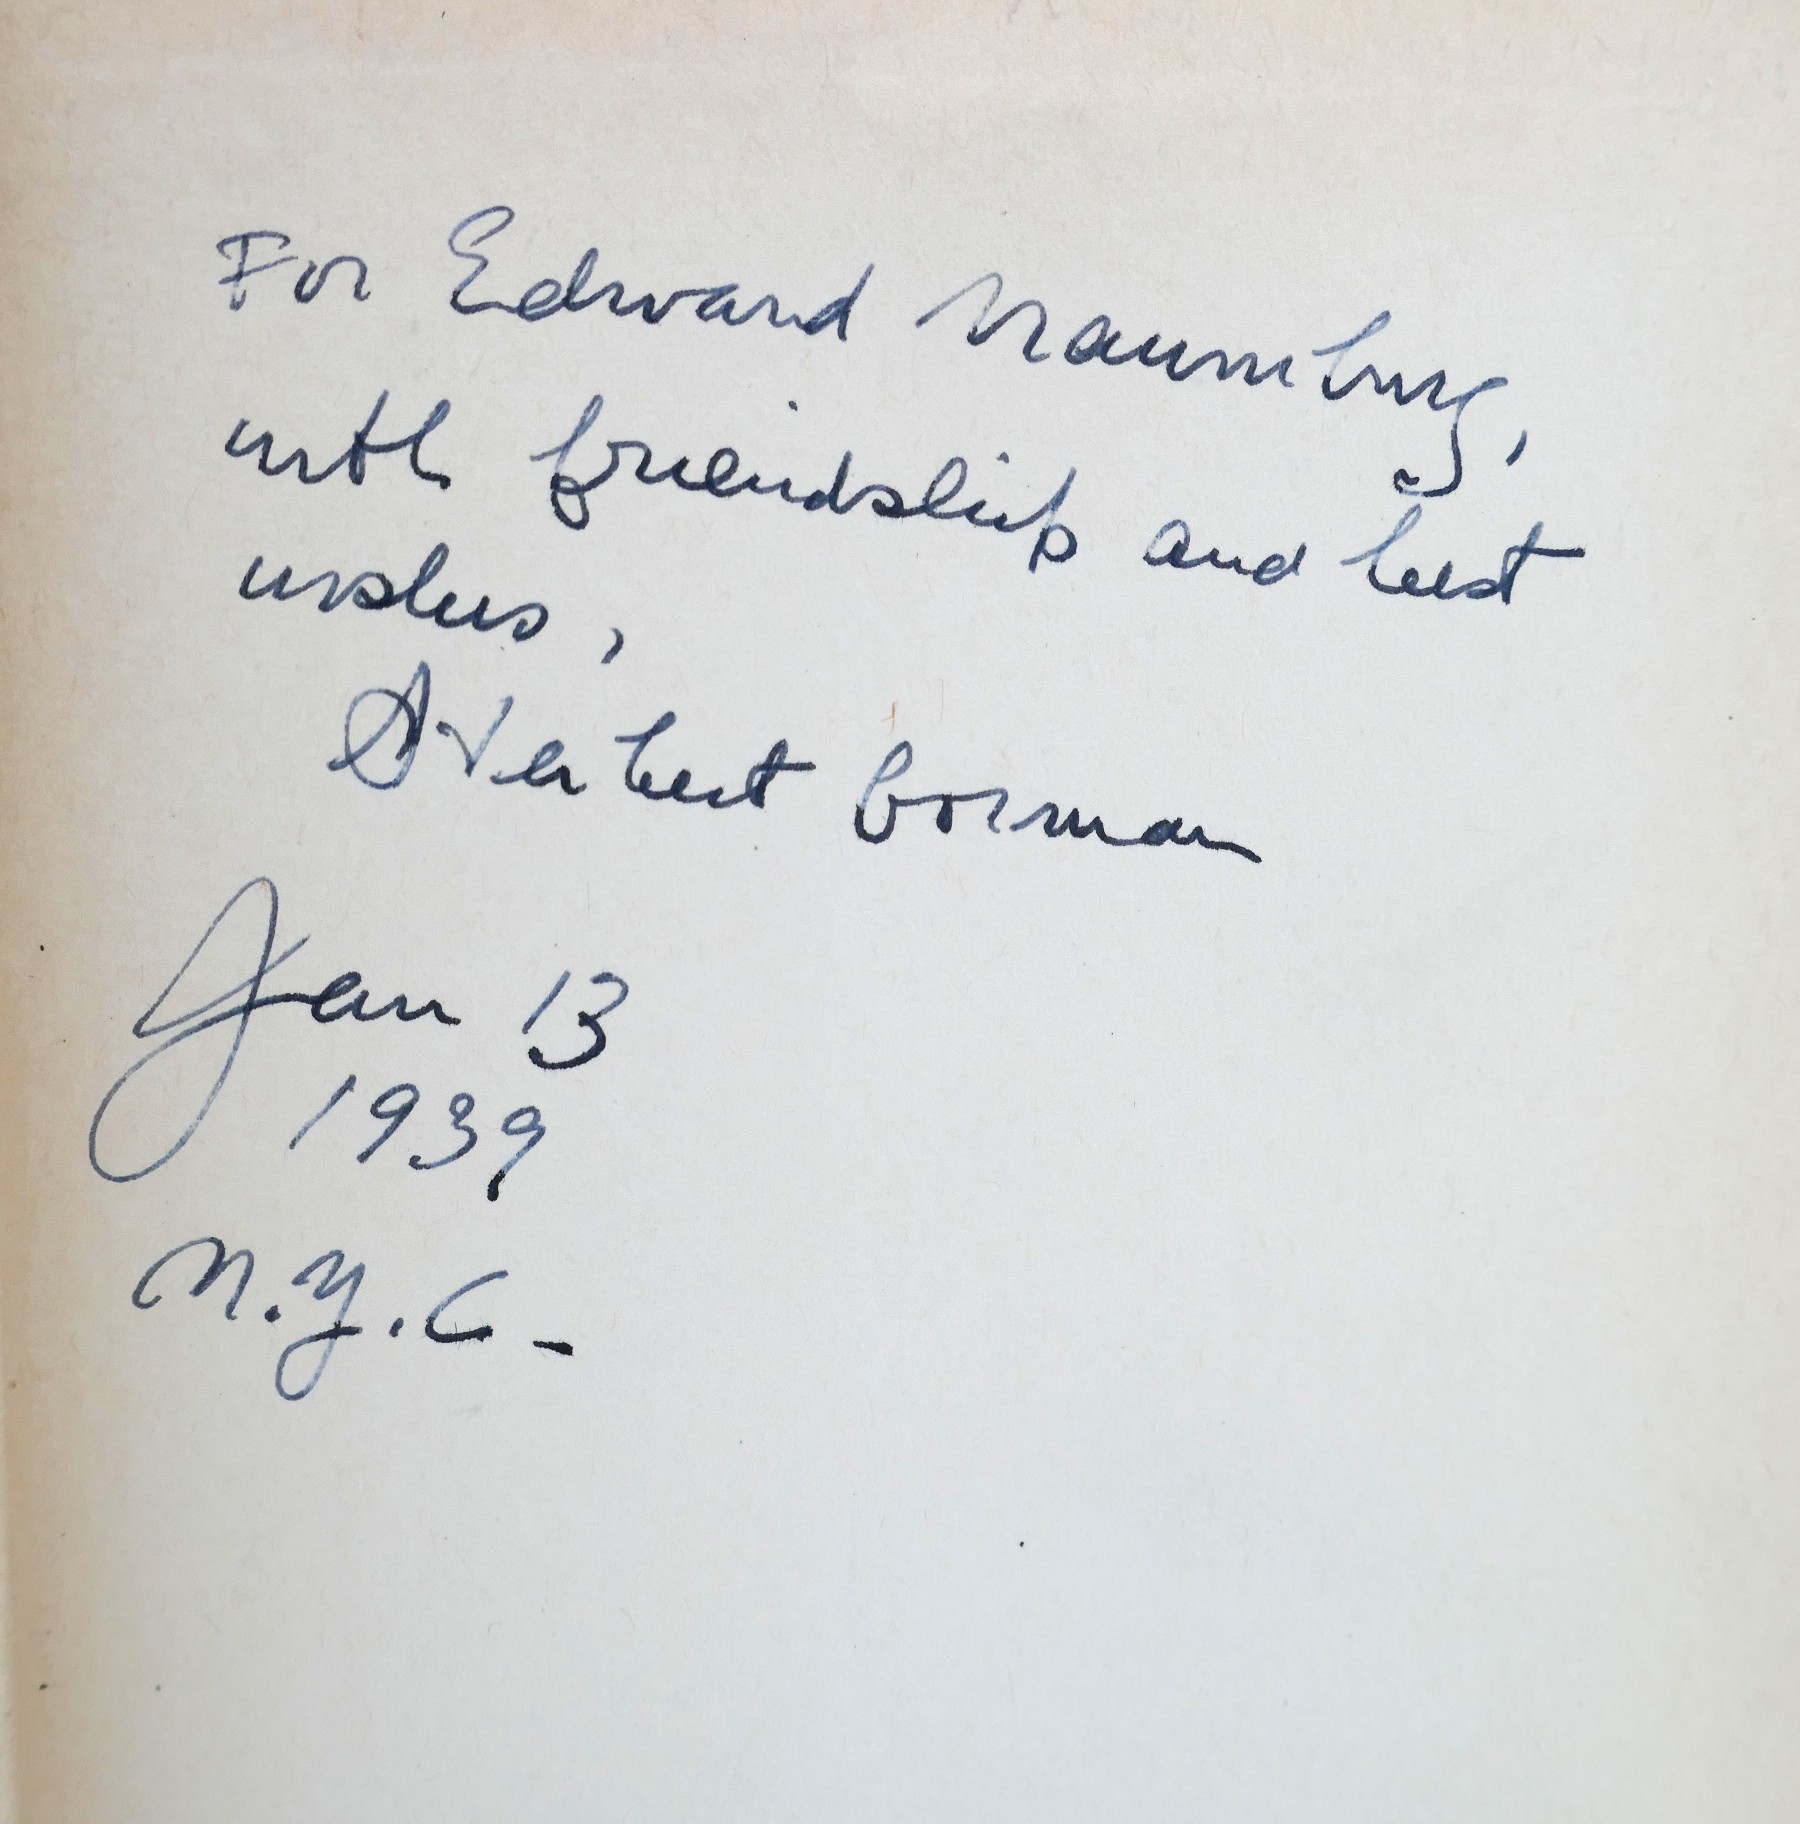 For Edward Naumburg,
with friendship and best
wishes,
Herbert Gorman
Jan 13
1939
N.Y.C.-